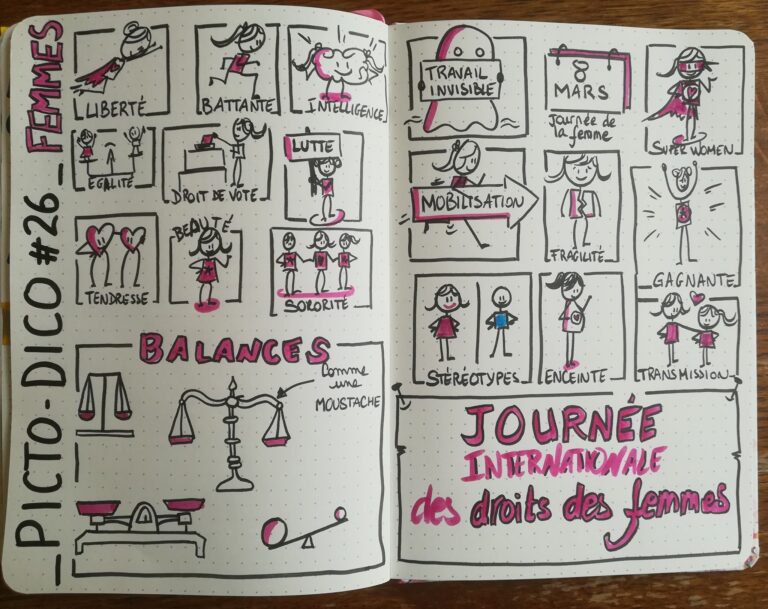 _PICTO-DICO #26_FEMMES
LIBERTÉ
BATTANTE
INTELLIGENCE
EGALITÉ
DROIT DE VOTE
LUTTE
TENDRESSE
BEAUTÉ
SORORITÉ
BALANCES
Comme
une
MOUSTACHE
TRAVAIL
INVISIBLE
8
MARS
Journée de
la femme
SUPER WOMEN
MOBILISATION
FRAGILITÉ
GAGNANTE
STÉRÉOTYPES
ENCEINTE
TRANSMISSION
JOURNÉE
INTERNATIONALE
des droits des femmes